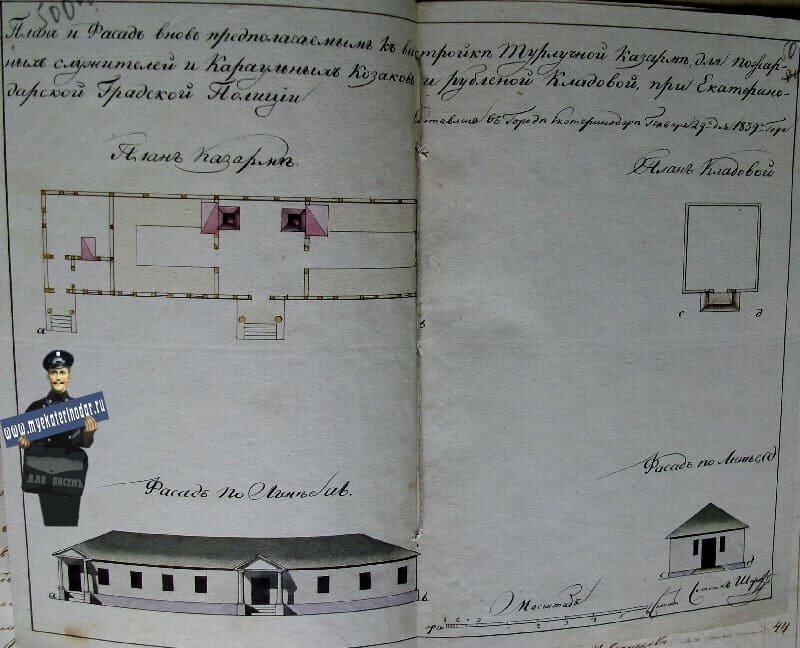 500
Планъ и Фасадъ вновь предполагаемымъ къ выстройкѣ Турлучной Казармѣ, для пожар-
ныхъ служителей и Караульныхъ Козаковъ и рубленой Кладовой, при Екатерино-
дарской Градской Полиціи
Составленъ въ Городѣ Екатеринодарѣ Генваря 29го дня 1839го Года
Планъ Казармѣ.
Планъ Кладовой
а
в
с
д
www.myekaterinodar.ru
ДЛЯ ПИСЕМЪ
Фасадъ по Линѣе ав.
Фасадъ по Линѣе сд
а
в
с
д
Масштабъ
3 2 1
1 2 3 4 5
44